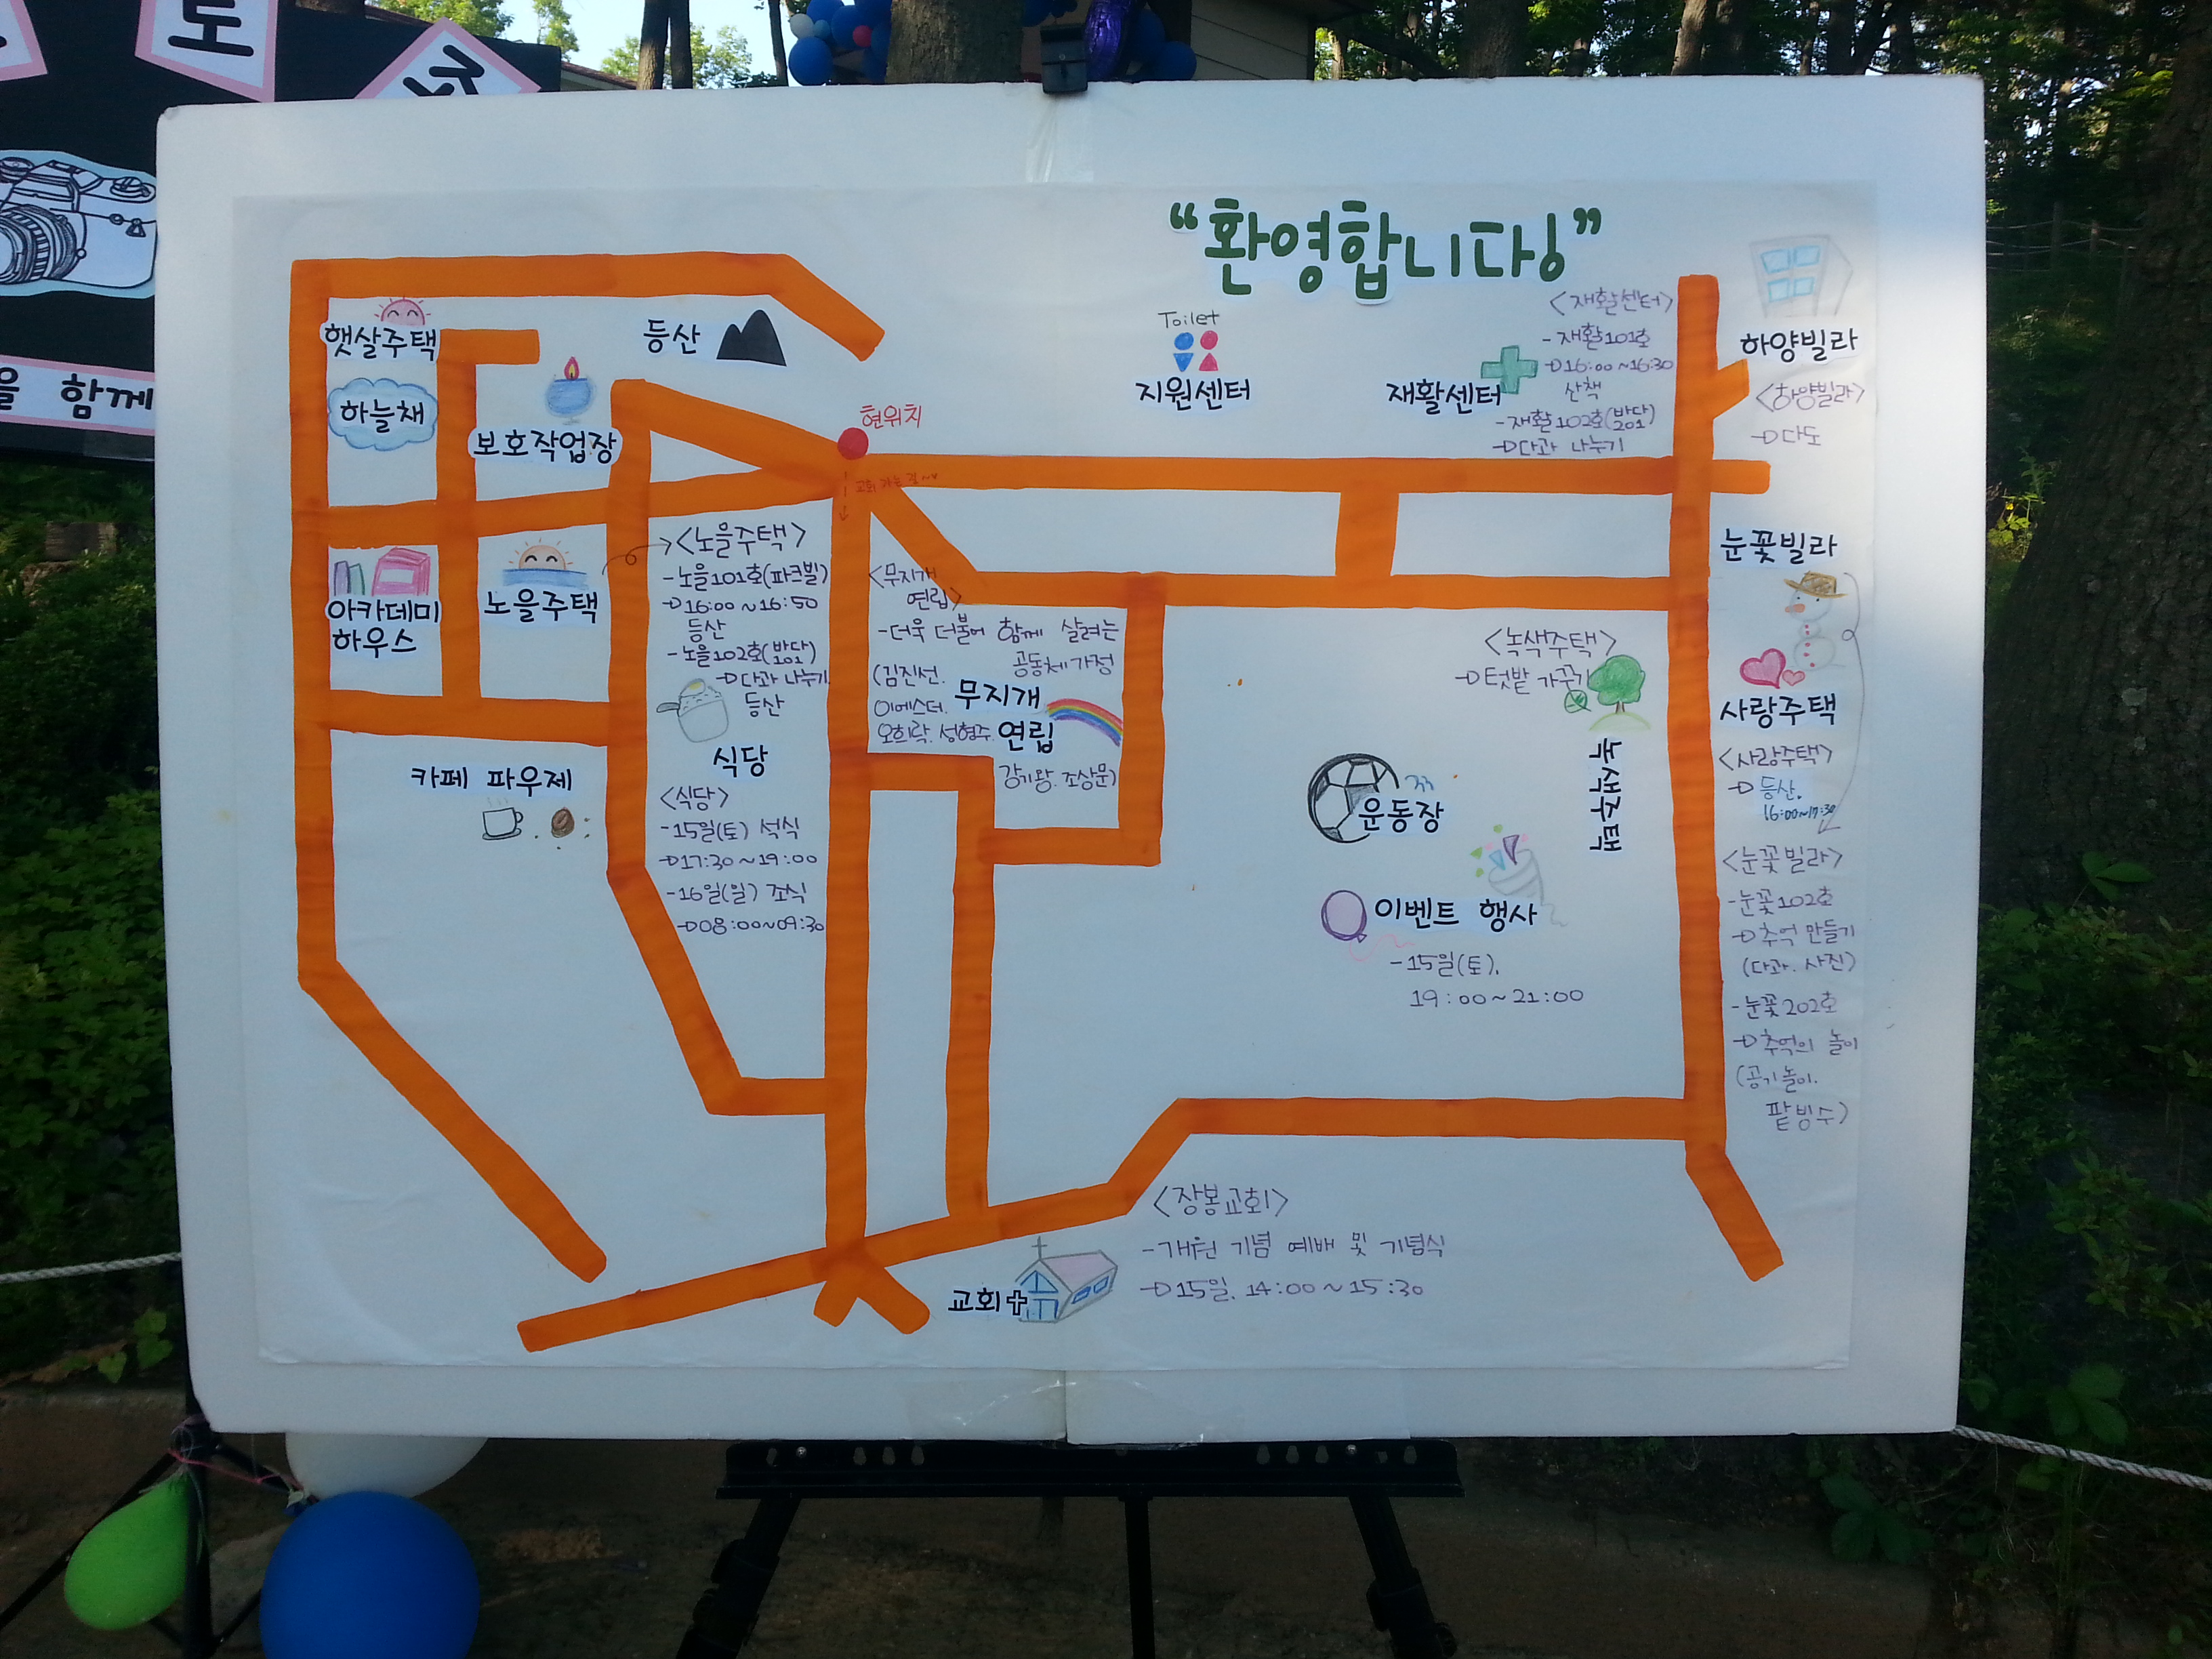 토
을 함께
"환영합니다!"
햇살주택
하늘채
등산
보호작업장
현위치
교회 가는 길~♥
Toilet
지원센터
재활센터
<재활센터>
- 재활101호
→16:00~16:30
산책
- 재활102호(바다201)
→다과 나누기
하양빌라
<하양빌라>
→다도
아카데미
하우스
노을주택
<노을주택>
- 노을101호(파크빌)
→16:00~16:50
등산
- 노을102호(바다101)
→다과 나누기
등산
<무지개
연립>
- 더욱 더불어 함께 살려는
공동체가정
(김진선.
이에스더.
오희락. 성형주.
강기왕. 조상문)
무지개
연립
카페 파우제
식당
<식당>
- 15일(토) 석식
→17:30~19:00
- 16일(일) 조식
→08:00~09:30
<녹색주택>
→텃밭 가꾸기
녹색주택
운동장
이벤트 행사
- 15일(토).
19:00~21:00
눈꽃빌라
사랑주택
<사랑주택>
→등산.
16:00~17:30
<눈꽃빌라>
- 눈꽃102호
→추억 만들기
(다과. 사진)
- 눈꽃202호
→추억의 놀이
(공기놀이.
팥빙수)
교회
<장봉교회>
- 개원 기념 예배 및 기념식
→15일. 14:00~15:30